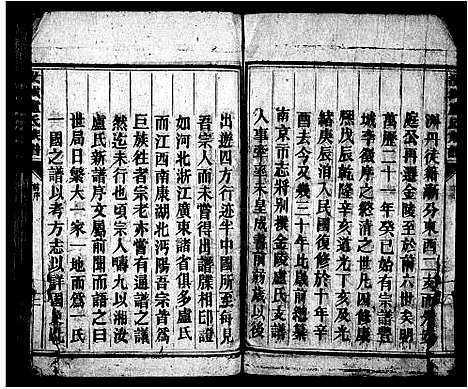 濟丹徒籍漸分東西二亥兩
庭公再遷金陵至於前六世矣明
萬歷二十一年癸巳始有宗譜豐
城李徵序之終清之世凡四修康
熙戊辰乾隆辛亥道光丁亥及光
緒庚辰洎入民國復修於十年辛
酉去今又幾三十年比歲遭
南京市志將別撰金陵盧氏支譜
人事牽率未皇成書前幼歲以後
出遊四方行迹半中國所至每見
吾宗人而未嘗得出譜牒相印證
如河北浙江廣東諸省俱多盧氏
而江西南康湖北沔陽音宗首為
巨族往者宗老亦嘗有通譜之議
然迄未行也頃宗人疇九以湘汝
盧氏新譜序文屬前開而語之曰
世局日繁大一家一地而為一氏
一國之譜以考方志以詳國